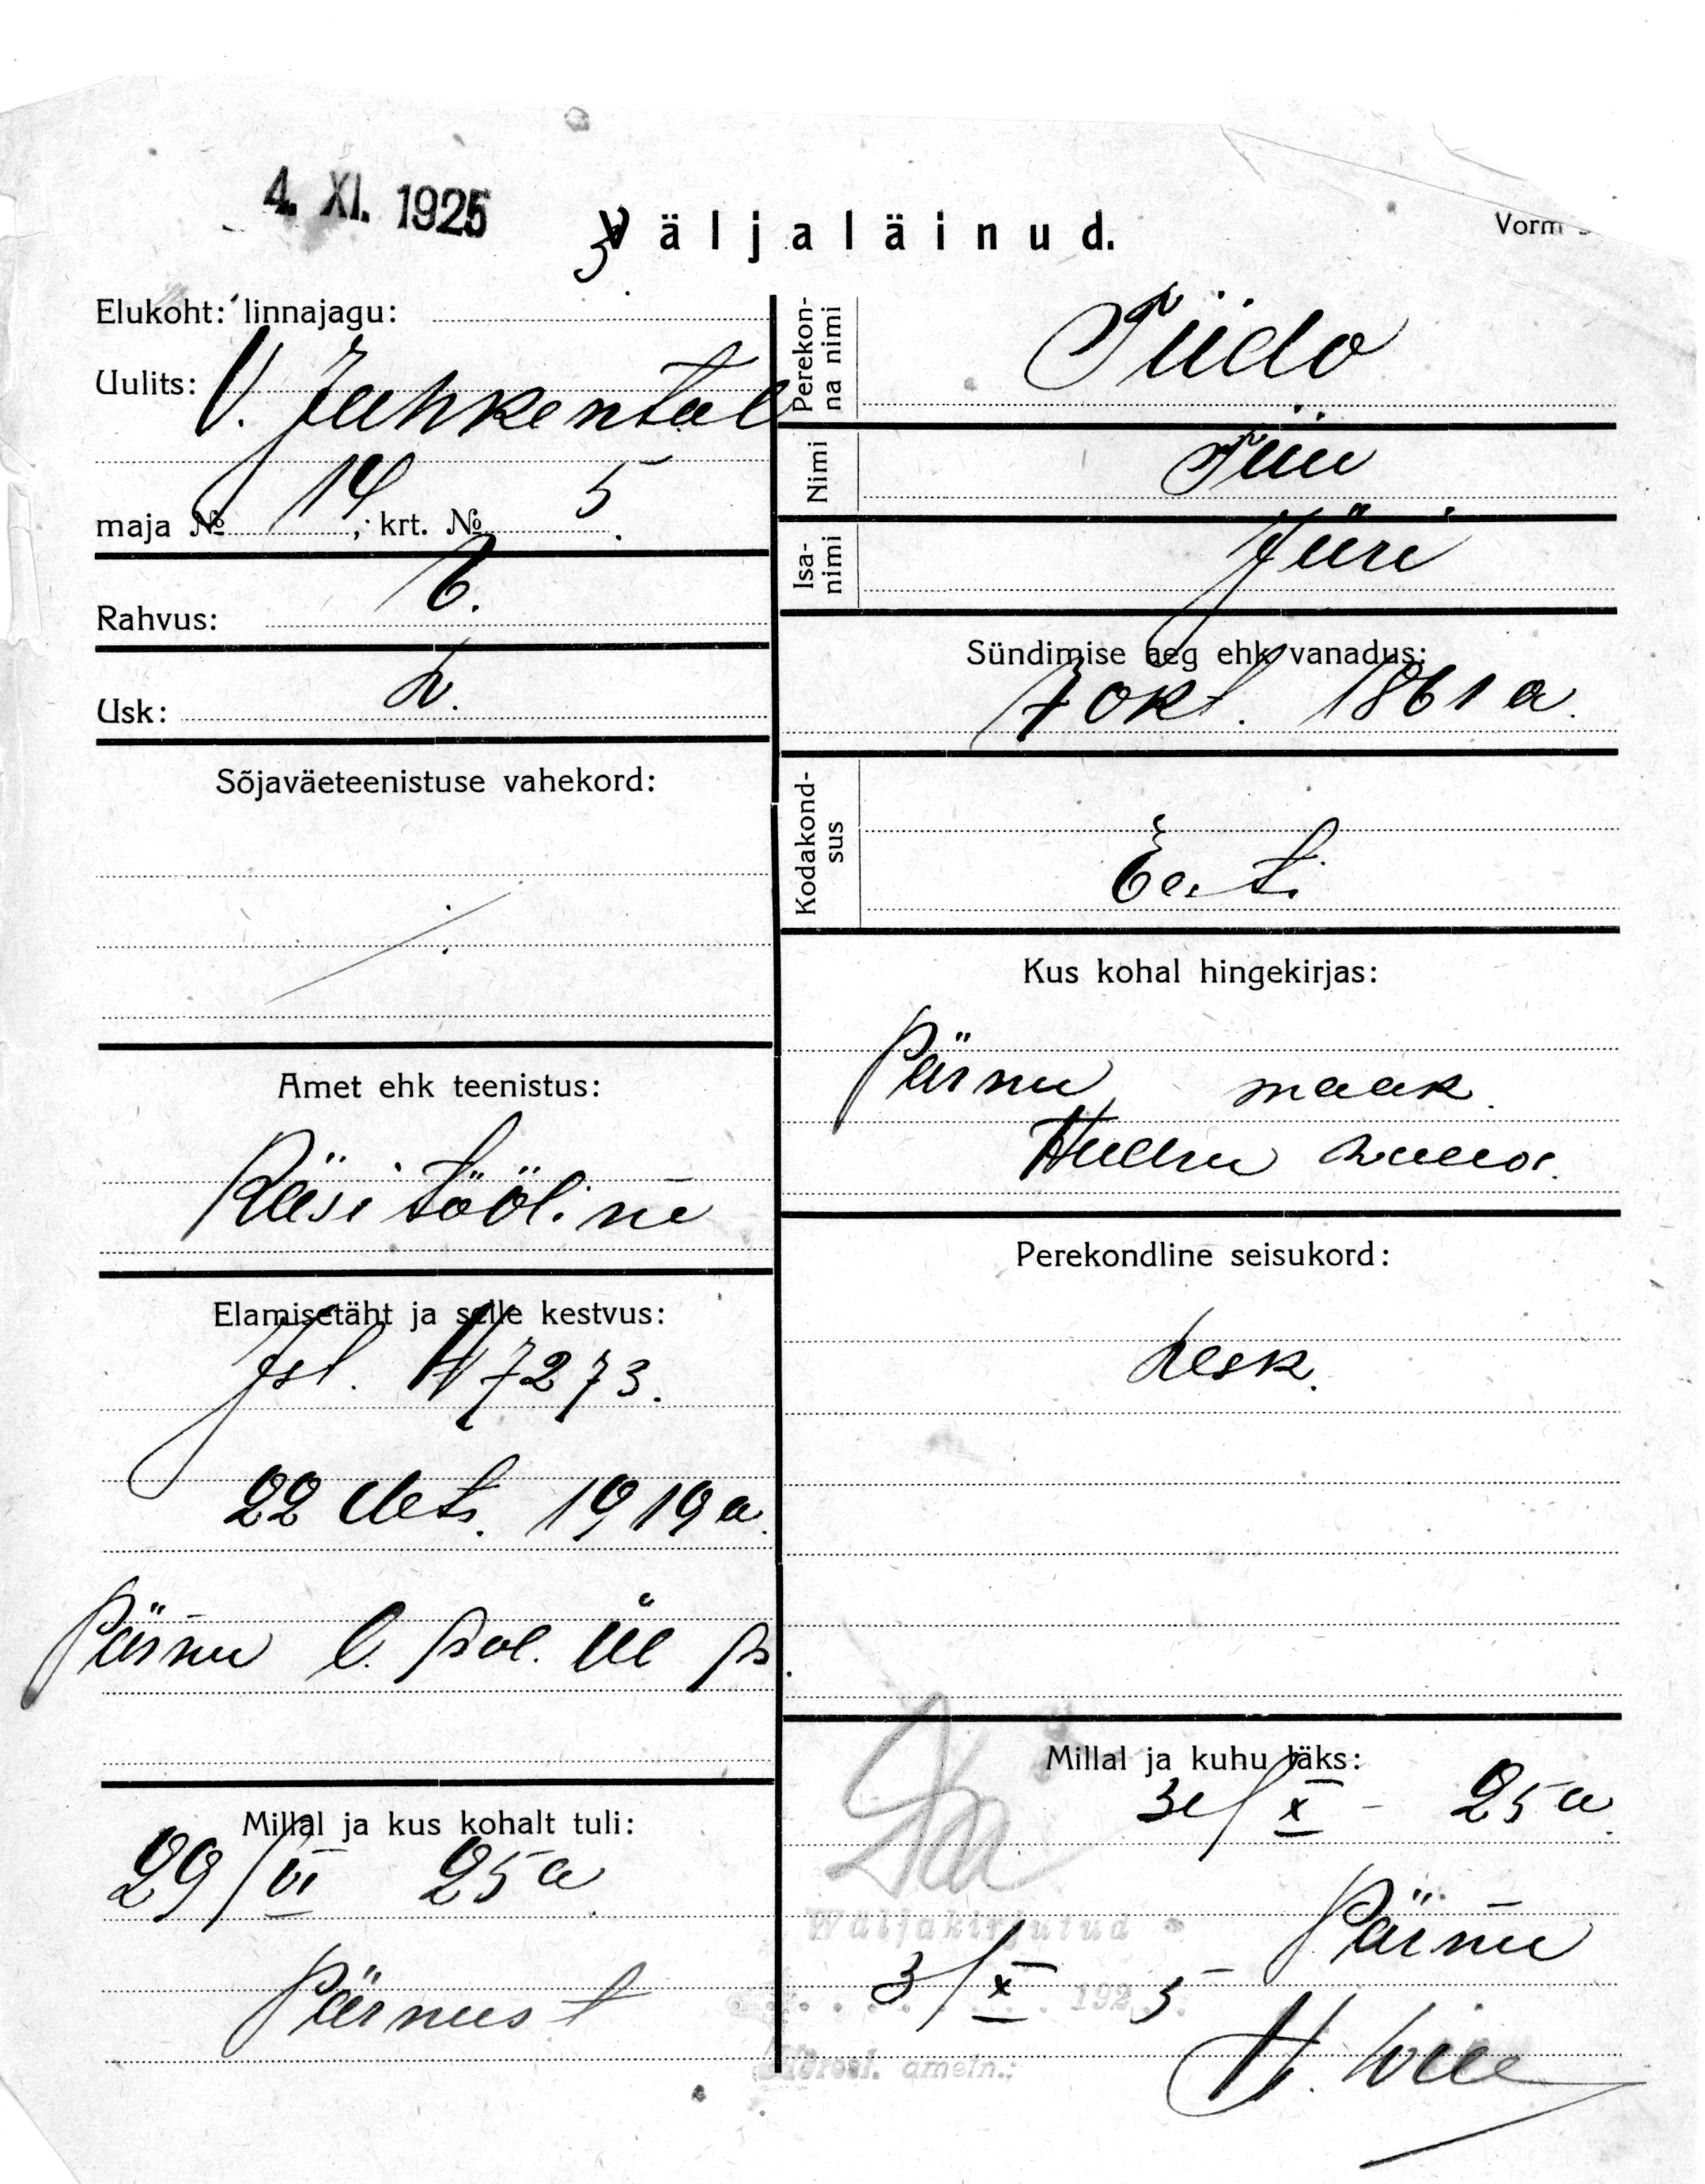 4. XI. 1925
Väljaläinud.
Vorm
Elukoht: linnajagu:
Uulits: V. Juhkental
maja № 14, krt. № 5.
Rahvus: E.
Usk: L.
Sõjaväeteenistuse vahekord:
Amet ehk teenistus:
Käsitööline
Elamisetäht ja selle kestvus:
Isl. № 7273.
22 dets. 1919 a.
Pärnu l. pol. ül p.
Millal ja kus kohalt tuli:
29/VI 25 a.
Pärnust
Perekonna nimi
Tiido
Nimi
Tiiu
Isanimi
Jüri
Sündimise aeg ehk vanadus:
7 okt. 1861 a.
Kodakondsus
Eesti
Kus kohal hingekirjas:
Pärnu maak.
Perekondline seisukord:
Lesk.
Millal ja kuhu läks:
31/X - 25 a.
Pärnu
Wäljakirjutud
3/X 1925
ametn.: